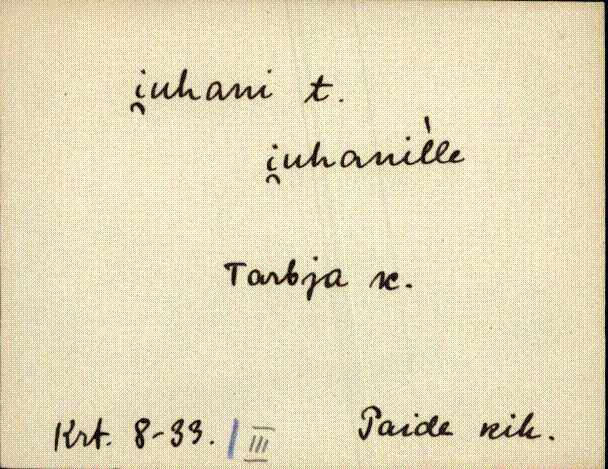 i̯uhani t.
i̯uhanil̀le
Tarbja k.
Krt. 8-33. / III
Paide kih.